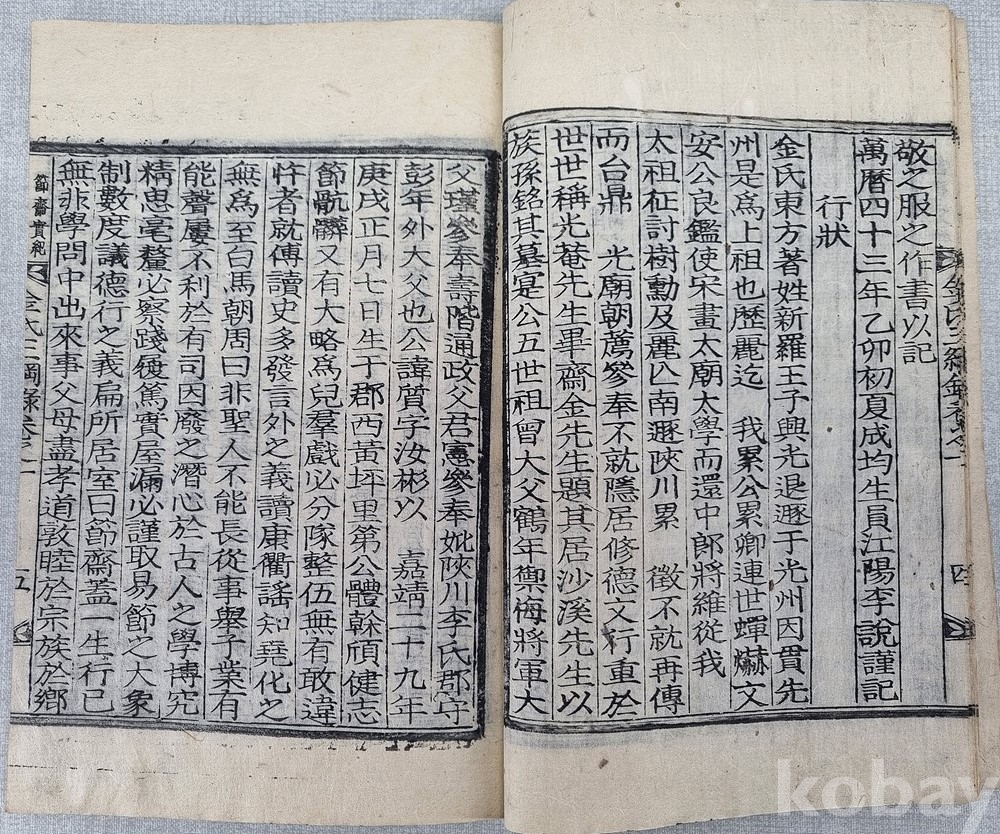 敬之服之作書以記
萬曆四十三年乙卯初夏成均生員江陽李說謹記
行狀
金氏東方著姓新羅王子興光退遯于光州因貫先
州是爲上祖也歷麗迄 我累公累卿連世蟬爀文
安公良鑑使宋畫太廟太學而還中郎將維從我
太祖征討樹勳及麗亾南遯陜川累 徵不就再傳
而台鼎 光廟朝薦參奉不就隱居修德文行重於
世世稱光菴先生畢齋金先生題其居沙溪先生以
族孫銘其墓寔公五世祖曾大父鶴年禦侮將軍大
父瑾參奉壽階通政父君憲參奉妣陜川李氏郡守
彭年外大父也公諱質字汝彬以 嘉靖二十九年
庚戌正月七日生于郡西黃坪里第公體榦頎健志
節骯髒又有大略爲兒羣戲必分隊整伍無有敢違
忤者就傅讀史多發言外之義讀康衢謠知堯化之
無爲至白馬朝周曰非聖人不能長從事擧子業有
能聲屢不利於有司因廢之潛心於古人之學博究
精思毫釐必察踐履篤實屋漏必謹取易節之大象
制數度議德行之義扁所居室曰節齋蓋一生行已
無非學問中出來事父母盡孝道敦睦於宗族於鄉
節齋實紀
金氏三綱錄卷之一
五
四
kobay